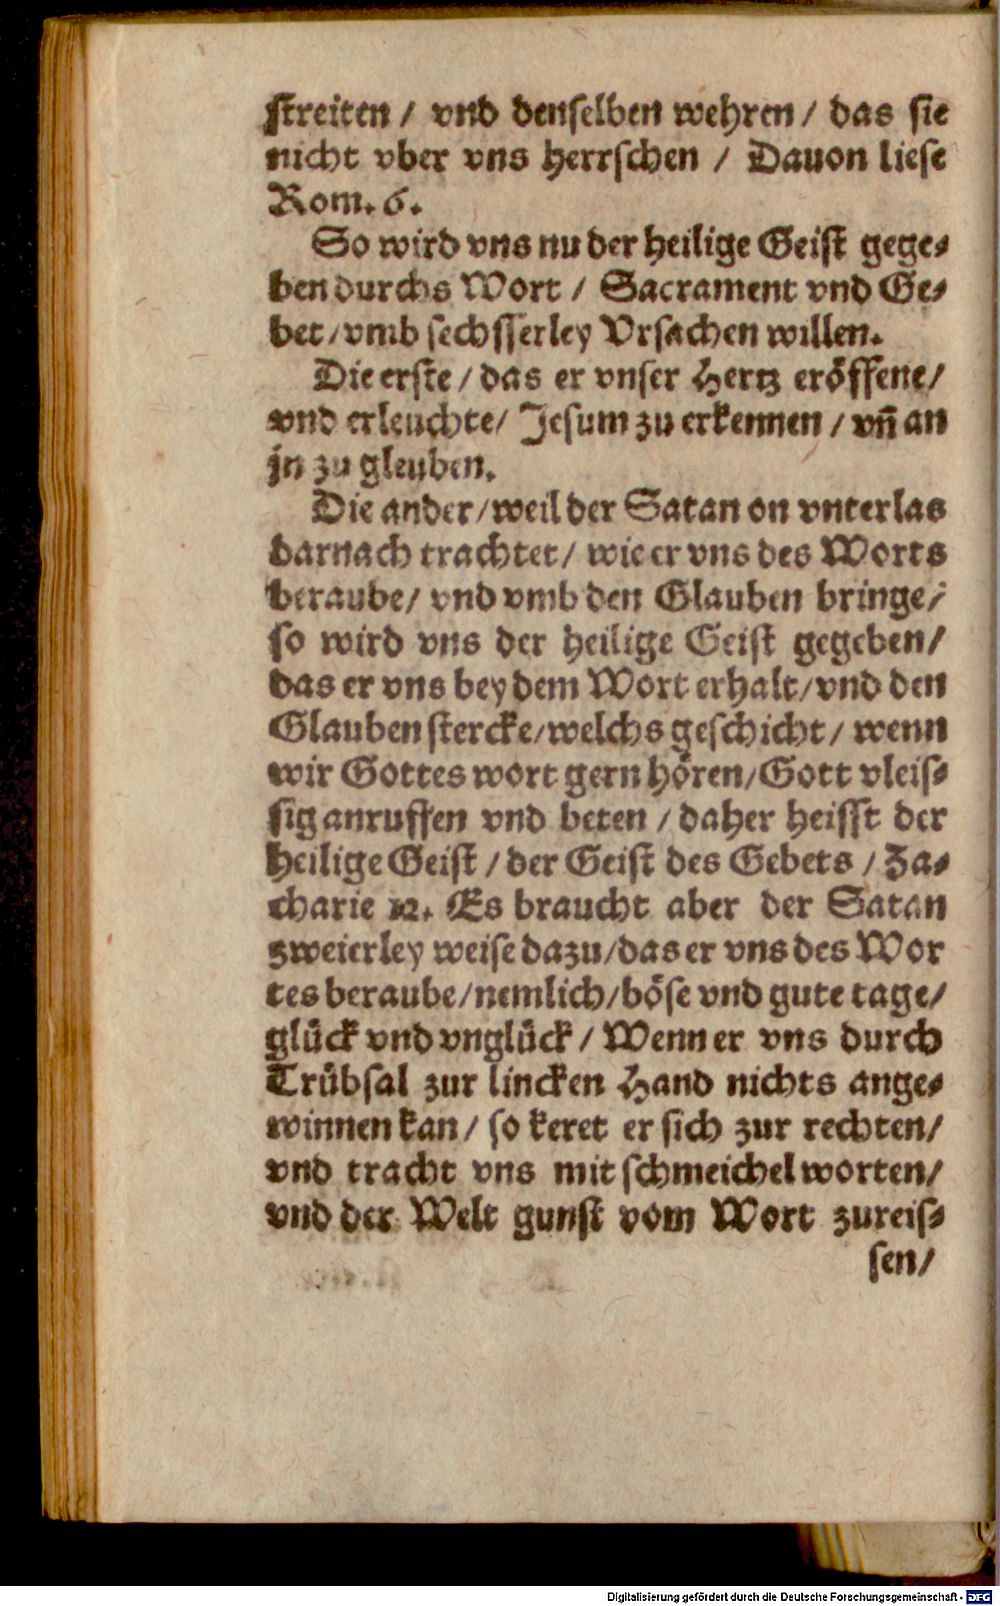 streiten / vnd denselben wehren / das sie
nicht vber vns herrschen / Dauon liese
Rom. 6.
So wird vns nu der heilige Geist gege-
ben durchs Wort / Sacrament vnd Ge-
bet / vmb sechsserley Vrsachen willen.
Die erste / das er vnser Hertz eröffene /
vnd erleuchte / Jesum zu erkennen / vn̄ an
jn zu gleuben.
Die ander / weil der Satan on vnterlas
darnach trachtet / wie er vns des Worts
beraube / vnd vmb den Glauben bringe /
so wird vns der heilige Geist gegeben /
das er vns bey dem Wort erhalt / vnd den
Glauben stercke / welchs geschicht / wenn
wir Gottes wort gern hören / Gott vleis-
sig anruffen vnd beten / daher heisst der
heilige Geist / der Geist des Gebets / Za-
charie 12. Es braucht aber der Satan
zweierley weise dazu / das er vns des Wor
tes beraube / nemlich / böse vnd gute tage /
glück vnd vnglück / Wenn er vns durch
Trübsal zur lincken Hand nichts ange-
winnen kan / so keret er sich zur rechten /
vnd tracht vns mit schmeichel worten /
vnd der Welt gunst vom Wort zureis-
sen /
Digitalisierung gefördert durch die Deutsche Forschungsgemeinschaft - DFG